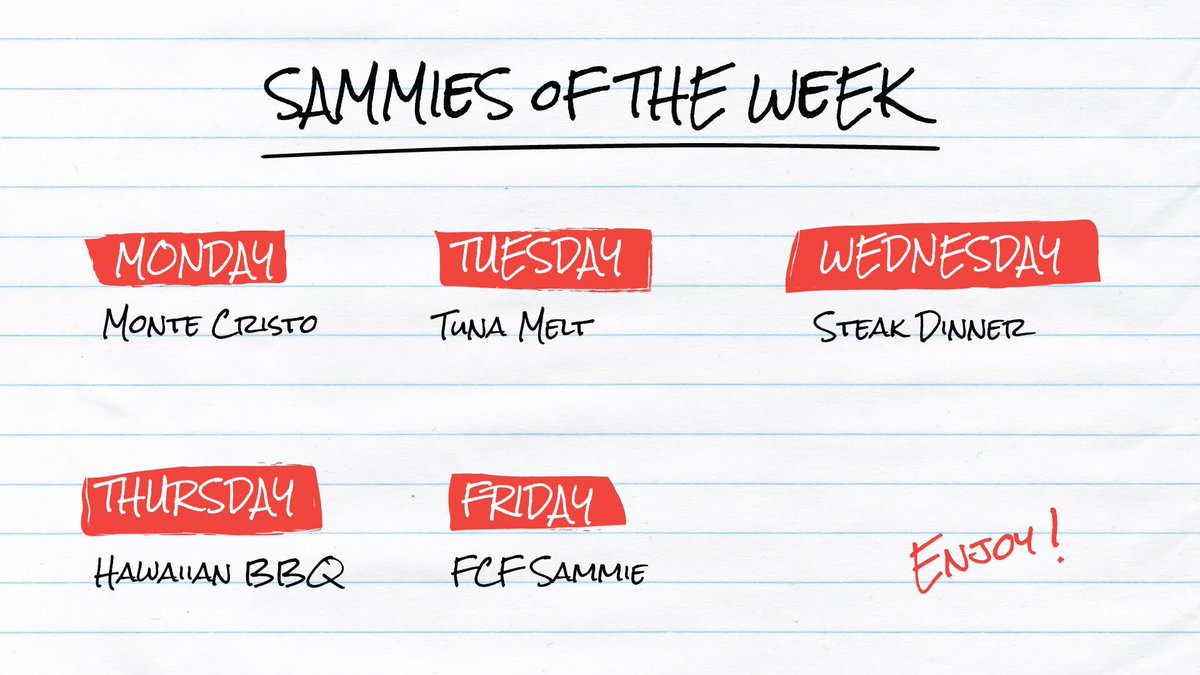 SAMMIES OF THE WEEK
MONDAY
MONTE CRISTO
TUESDAY
TUNA MELT
WEDNESDAY
STEAK DINNER
THURSDAY
HAWAIIAN BBQ
FRIDAY
FCF SAMMIE
ENJOY!